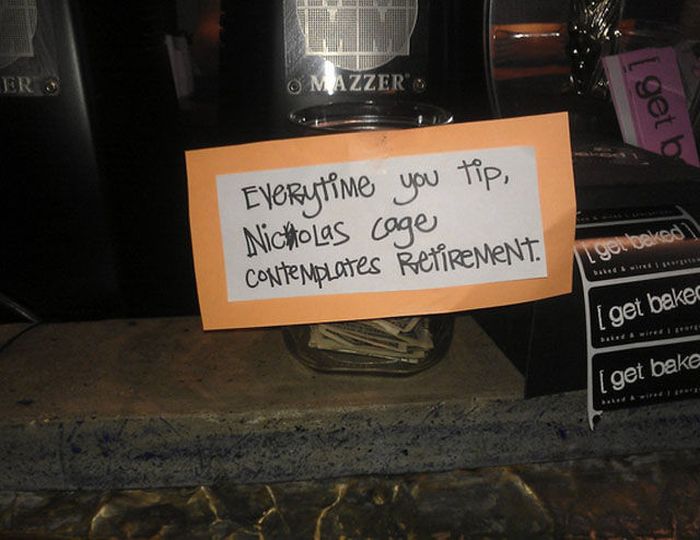 ER
MAZZER
EveRytime you tip,
Nicholas cage
contemplates Retirement.
[ get b
[ get baked ]
baked & wired | georgetow
[ get baked
baked & wired | georg
[ get bake
baked & wired | georg